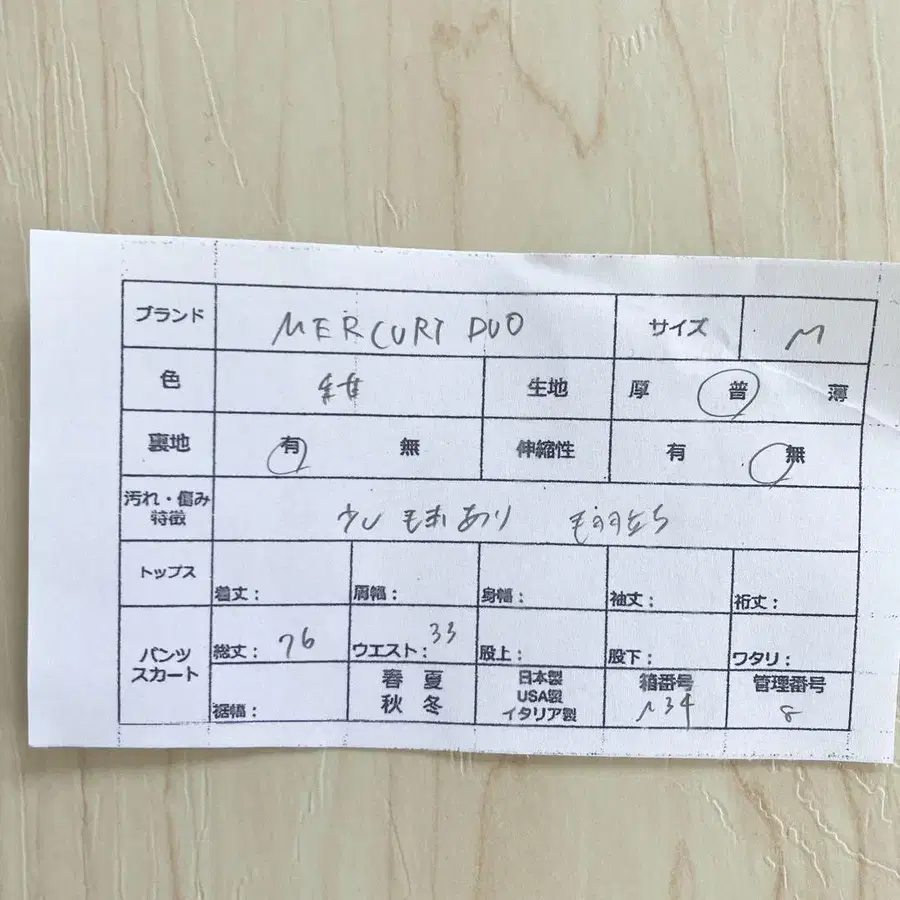 ブランド MERCURI DUO サイズ M
色 生地 厚 普 薄
裏地 有 無 伸縮性 有 無
汚れ・傷み
特徴
少し毛玉あり 毛羽立ち
トップス 着丈: 肩幅: 身幅: 袖丈: 裄丈:
パンツ
スカート
総丈: 76 ウエスト: 33 股上: 股下: ワタリ:
裾幅:
春 夏
秋 冬
日本製
USA製
イタリア製
箱番号
管理番号
8